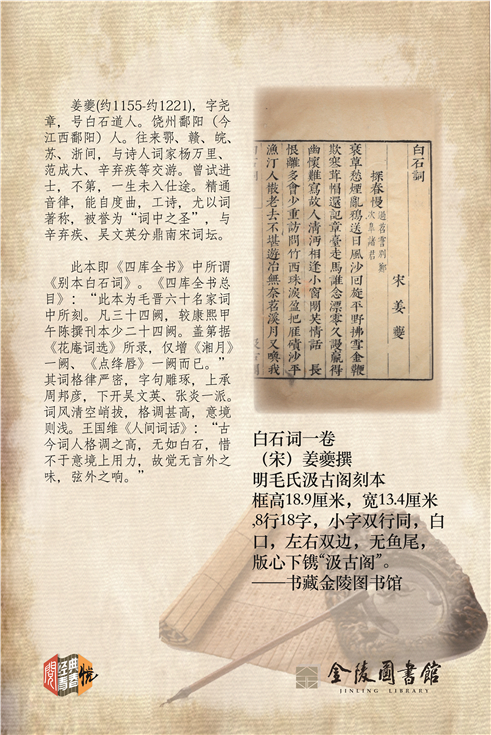 姜夔(约1155-约1221)，字尧
章，号白石道人。饶州鄱阳（今
江西鄱阳）人。往来鄂、赣、皖、
苏、浙间，与诗人词家杨万里、
范成大、辛弃疾等交游。曾试进
士，不第，一生未入仕途。精通
音律，能自度曲，工诗，尤以词
著称，被誉为“词中之圣”，与
辛弃疾、吴文英分鼎南宋词坛。
此本即《四库全书》中所谓
《别本白石词》。《四库全书总
目》：“此本为毛晋六十名家词
中所刻。凡三十四阙，较康熙甲
午陈撰刊本少二十四阙。盖第据
《花庵词选》所录，仅增《湘月》
一阙、《点绛唇》一阙而已。”
其词格律严密，字句雕琢，上承
周邦彦，下开吴文英、张炎一派。
词风清空峭拔，格调甚高，意境
则浅。王国维《人间词话》：“古
今词人格调之高，无如白石，惜
不于意境上用力，故觉无言外之
味，弦外之响。”
白石詞
宋 姜夔
探春慢
過苕霅別鄭
次皋諸君
衰草愁煙亂鴉送日風沙回旋平野拂雪金鞭
欺寒茸帽還記章臺走馬誰念漂零久謾贏得
幽懷難寫故人清沔相逢小窗閒共情話 長
恨離多會少重訪問竹西珠淚盈把雁磧沙平
漁汀人散老去不堪遊冶無奈苕溪月又喚我
白石词一卷
（宋）姜夔撰
明毛氏汲古阁刻本
框高18.9厘米，宽13.4厘米
,8行18字，小字双行同，白
口，左右双边，无鱼尾，
版心下镌“汲古阁”。
——书藏金陵图书馆
阅经典
青春悦
金陵圖書館
JINLING LIBRARY